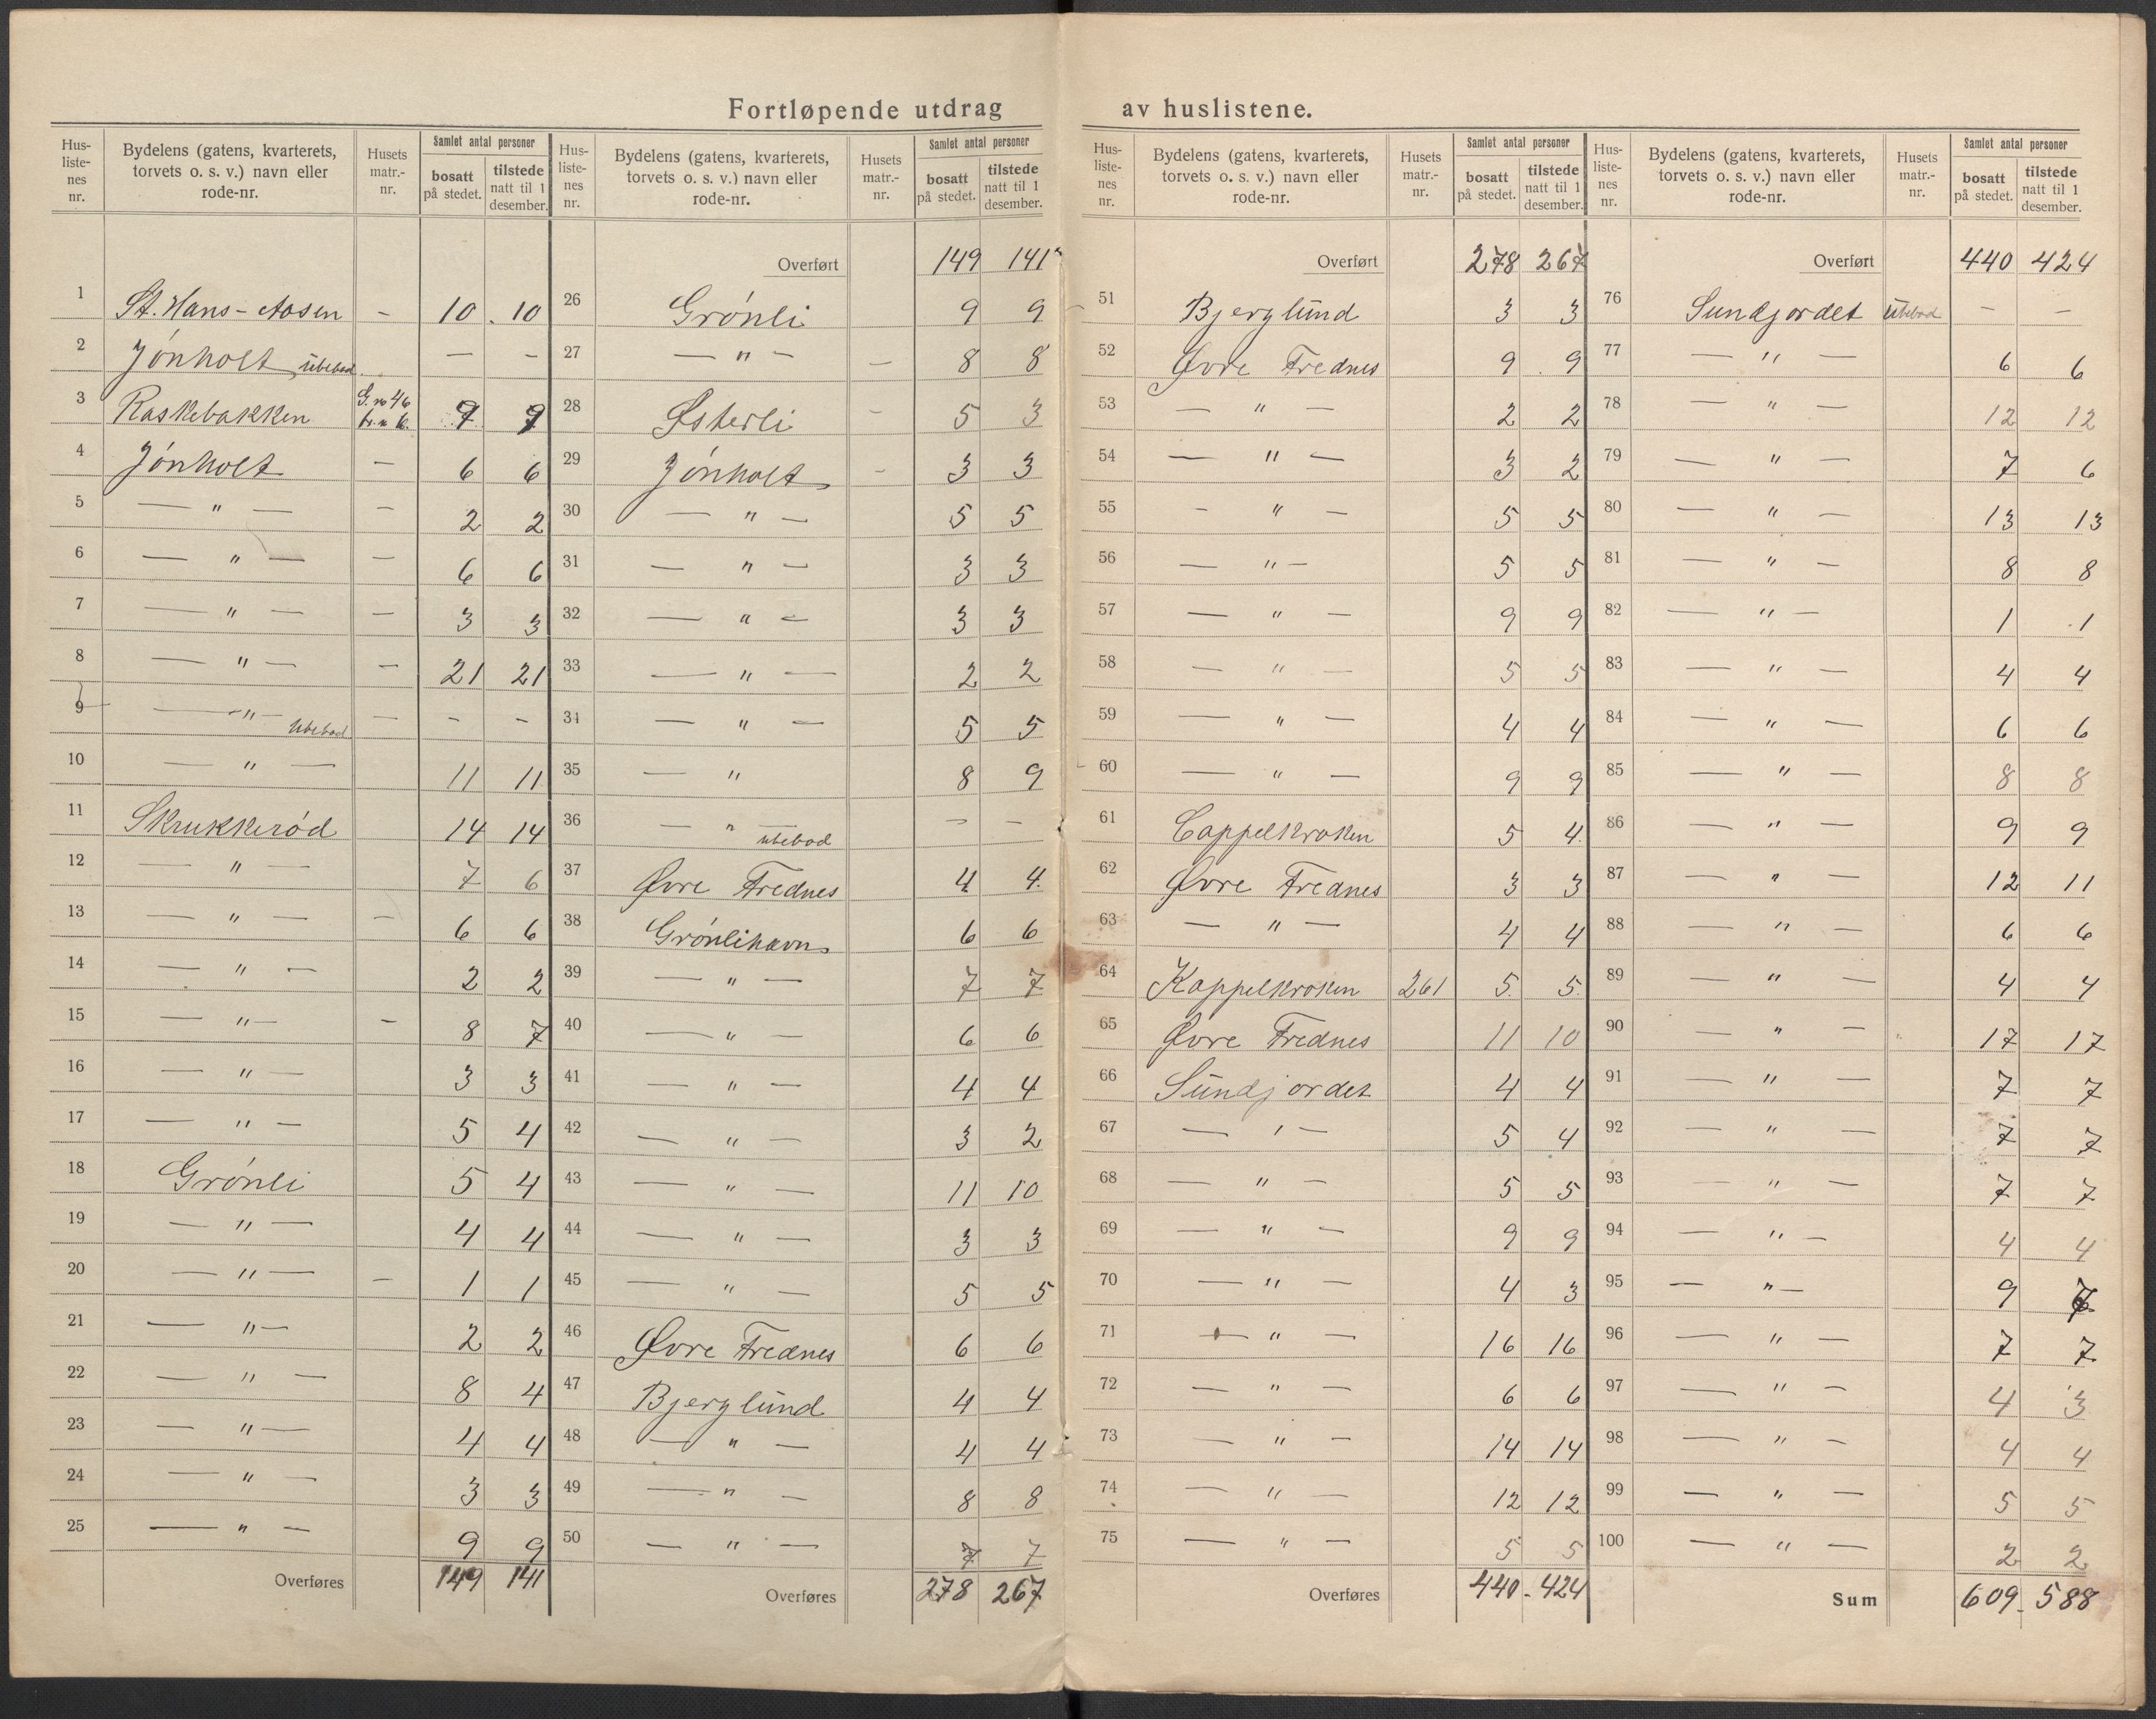 Fortløpende utdrag av huslistene.
Hus-listenes nr. | Bydelens (gatens, kvarterets, torvets o. s. v.) navn eller rode-nr. | Husets matr.-nr. | Samlet antal personer | bosatt på stedet. | tilstede natt til 1 desember.
1 St. Hans-Aasen - 10 10
2 Jónholt ubebod. — -
3 Raskebakken G. no 46 br. n 6. 9 9
4 Jónholt — 6 6
5 — " — - 2 2
6 — " — — 6 6
7 — " — — 3 3
8 — " — — 21 21
9 — " — Ubebod — - -
10 — " — 11 11
11 Skrukkeród 14 14
12 — " — 7 6
13 — " — - 6 6
14 — " — 2 2
15 — " — - 8 7
16 — " — 3 3
17 — " — 5 4
18 Grónli 5 4
19 — " — 4 4
20 — " — — 1 1
21 — " — 2 2
22 — " — 8 4
23 — " — 4 4
24 — " — 3 3
25 — " — 9 9
Overføres 149 141
Hus-listenes nr. | Bydelens (gatens, kvarterets, torvets o. s. v.) navn eller rode-nr. | Husets matr.-nr. | Samlet antal personer | bosatt på stedet. | tilstede natt til 1 desember.
Overført 149 141
26 Grónli 9 9
27 — " — — 8 8
28 Østerli - 5 3
29 Jónholt - 3 3
30 — " — 5 5
31 — " — 3 3
32 — " — 3 3
33 — " — 2 2
34 — " — 5 5
35 — " 8 9
36 — " — ubebod - -
37 Øvre Frednes 4 4
38 Grónlihavn 6 6
39 — " — 7 7
40 — " — 6 6
41 — " — 4 4
42 — " — 3 2
43 — " — 11 10
44 — " — 3 3
45 — " — 5 5
46 Øvre Frednes 6 6
47 Bjerglund 4 4
48 — " — 4 4
49 — " — 8 8
50 — " — 7 7
Overføres 278 267
Hus-listenes nr. | Bydelens (gatens, kvarterets, torvets o. s. v.) navn eller rode-nr. | Husets matr.-nr. | Samlet antal personer | bosatt på stedet. | tilstede natt til 1 desember.
Overført 278 267
51 Bjerglund 3 3
52 Øvre Frednes 9 9
53 — " — 2 2
54 — " — 3 2
55 - " — 5 5
56 — " — 5 5
57 — " — 9 9
58 — " — 5 5
59 — " — 4 4
60 — " — 9 9
61 Cappelkroken 5 4
62 Øvre Frednes 3 3
63 — " — 4 4
64 Kappelkroken 261 5 5
65 Øvre Frednes 11 10
66 Sundjordet 4 4
67 — ' — 5 4
68 — " — 5 5
69 — " — 9 9
70 — " — 4 3
71 — " — 16 16
72 — " — 6 6
73 — " — 14 14
74 — " — 12 12
75 — " — 5 5
Overføres 440 - 424
Hus-listenes nr. | Bydelens (gatens, kvarterets, torvets o. s. v.) navn eller rode-nr. | Husets matr.-nr. | Samlet antal personer | bosatt på stedet. | tilstede natt til 1 desember.
Overført 440 424
76 Sundjordet Ubebod — —
77 — " — 6 6
78 — " — 12 12
79 — " — 7 6
80 — " — 13 13
81 — " — 8 8
82 — " — 1 1
83 — " — 4 4
84 — " — 6 6
85 — " — 8 8
86 — " — 9 9
87 — " — 12 11
88 — " — 6 6
89 — " — 4 4
90 — " — 17 17
91 — " — 7 7
92 — " — 7 7
93 — " — 7 7
94 — " — 4 4
95 — " — 9
96 — " — 7 7
97 — " — 4 3
98 — " — 4 4
99 — " — 5 5
100 — " — 2 2
Sum 609 - 588